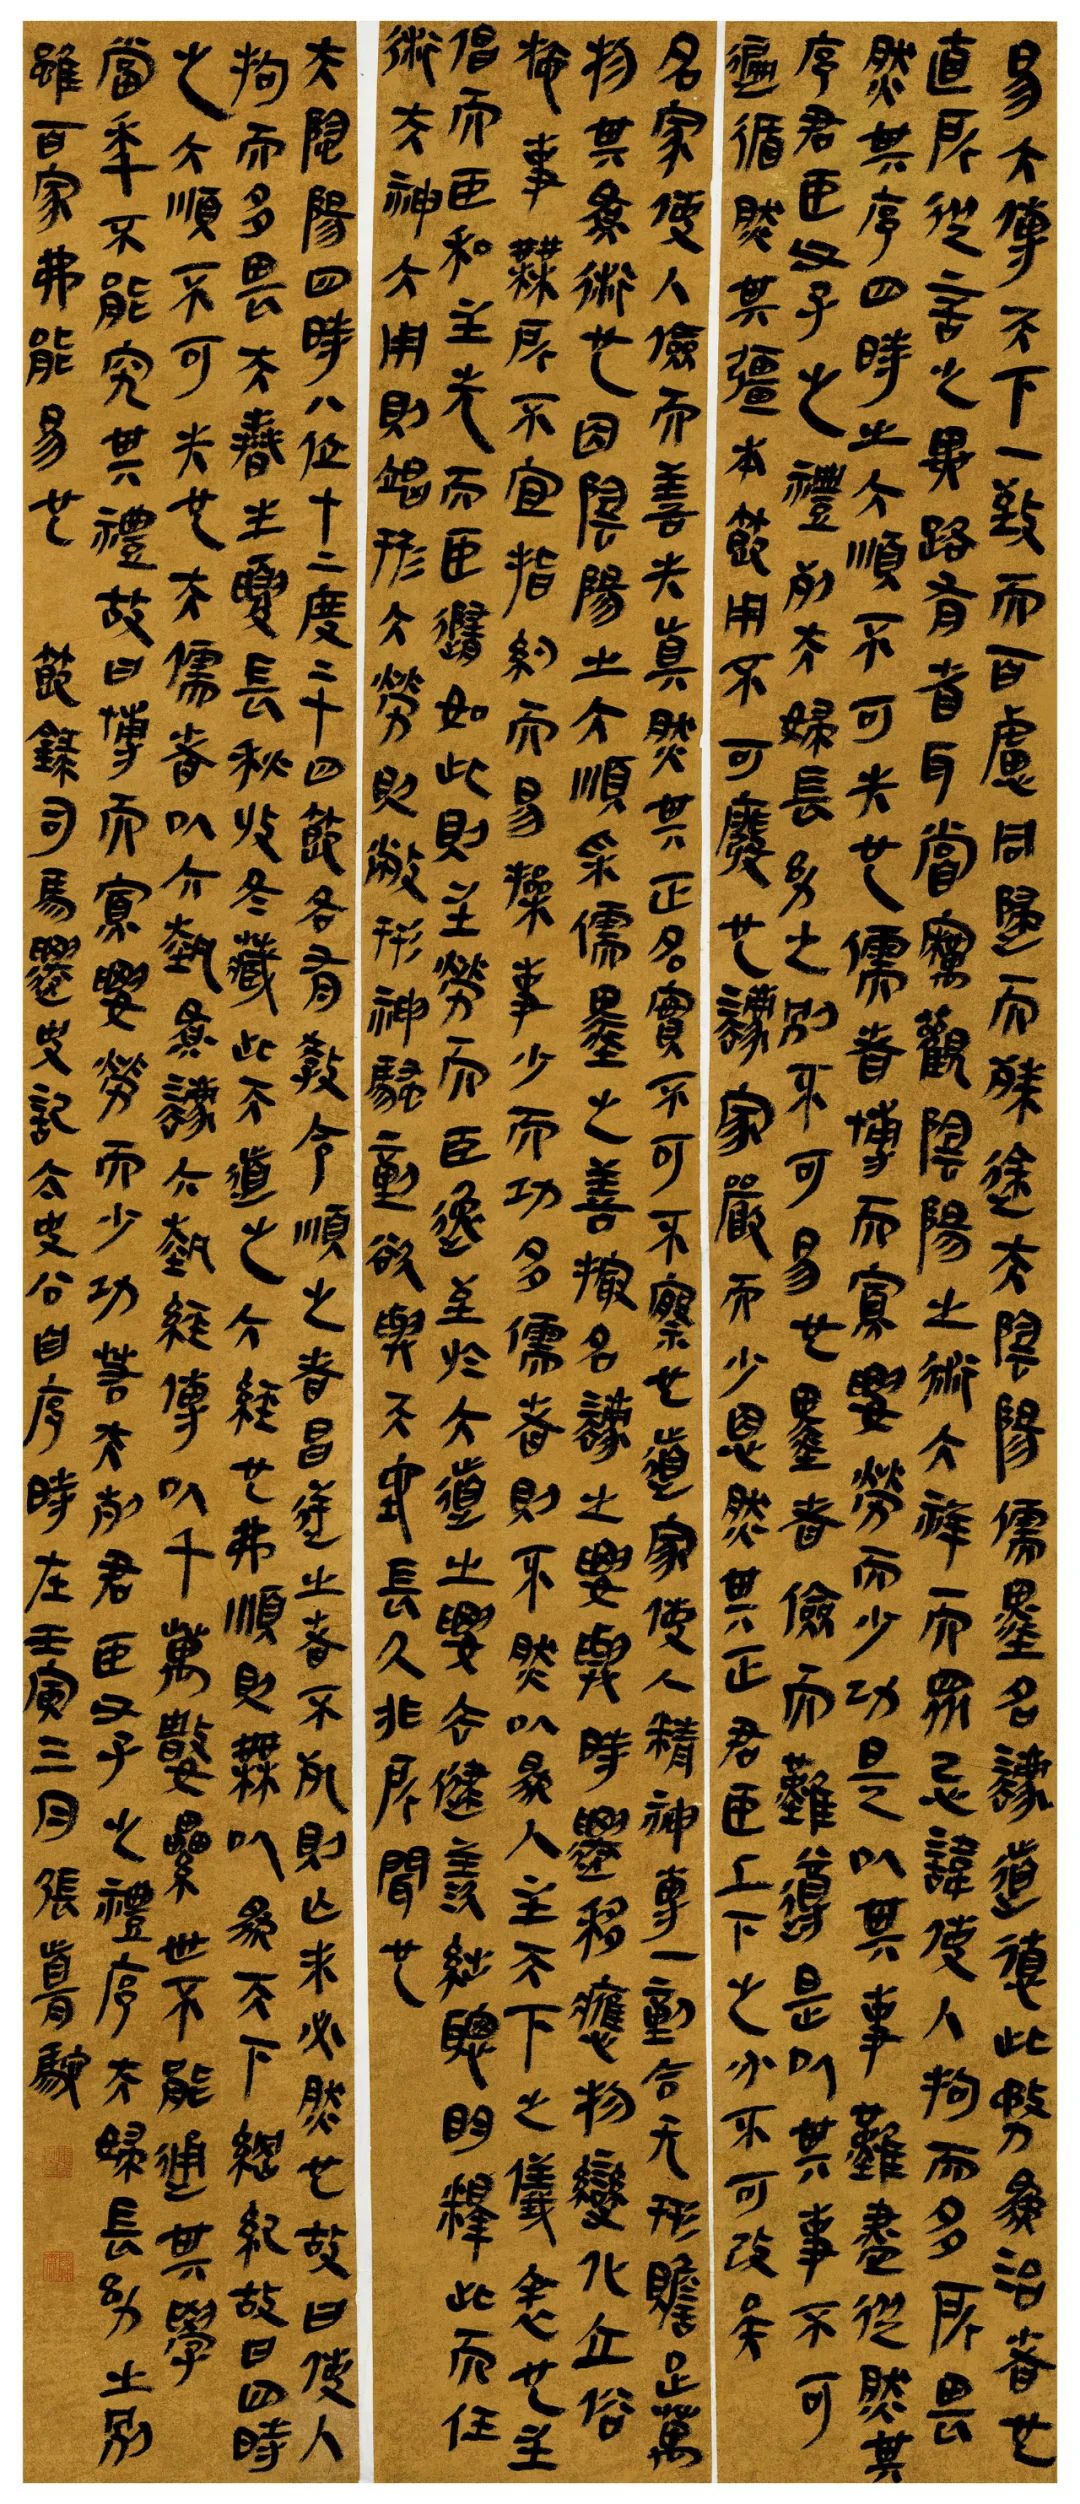 易大傳天下一致而百慮同歸而殊途夫陰陽儒墨名灋道德此務為治者也
直所從言之異路有省者耳嘗竊觀陰陽之術大祥而眾忌諱使人拘而多所畏
然其序四時之大順不可失也儒者博而寡要勞而少功是以其事難盡從然其
序君臣父子之禮列夫婦長幼之別不可易也墨者儉而難遵是以其事不可
遍循然其彊本節用不可廢也灋家嚴而少恩然其正君臣上下之分不可改矣
名家使人儉而善失真然其正名實不可不察也道家使人精神專一動合无形贍足萬
物其為術也因陰陽之大順采儒墨之善撮名灋之要與時遷移應物變化立俗
施事無所不宜指約而易操事少而功多儒者則不然以為人主天下之儀表也主
倡而臣和主先而臣隨如此則主勞而臣逸至於大道之要去健羨絀聰明釋此而任
術夫神大用則竭形大勞則敝形神騷動欲與天地長久非所聞也
夫陰陽四時八位十二度二十四節各有教令順之者昌逆之者不死則亡未必然也故曰使人
拘而多畏夫春生夏長秋收冬藏此天道之大經也弗順則無以為天下綱紀故曰四時
之大順不可失也夫儒者以六藝為灋六藝經傳以千萬數累世不能通其學
當年不能究其禮故曰博而寡要勞而少功若夫列君臣父子之禮序夫婦長幼之別
雖百家弗能易也 節錄司馬遷史記太史公自序時在壬寅三月張